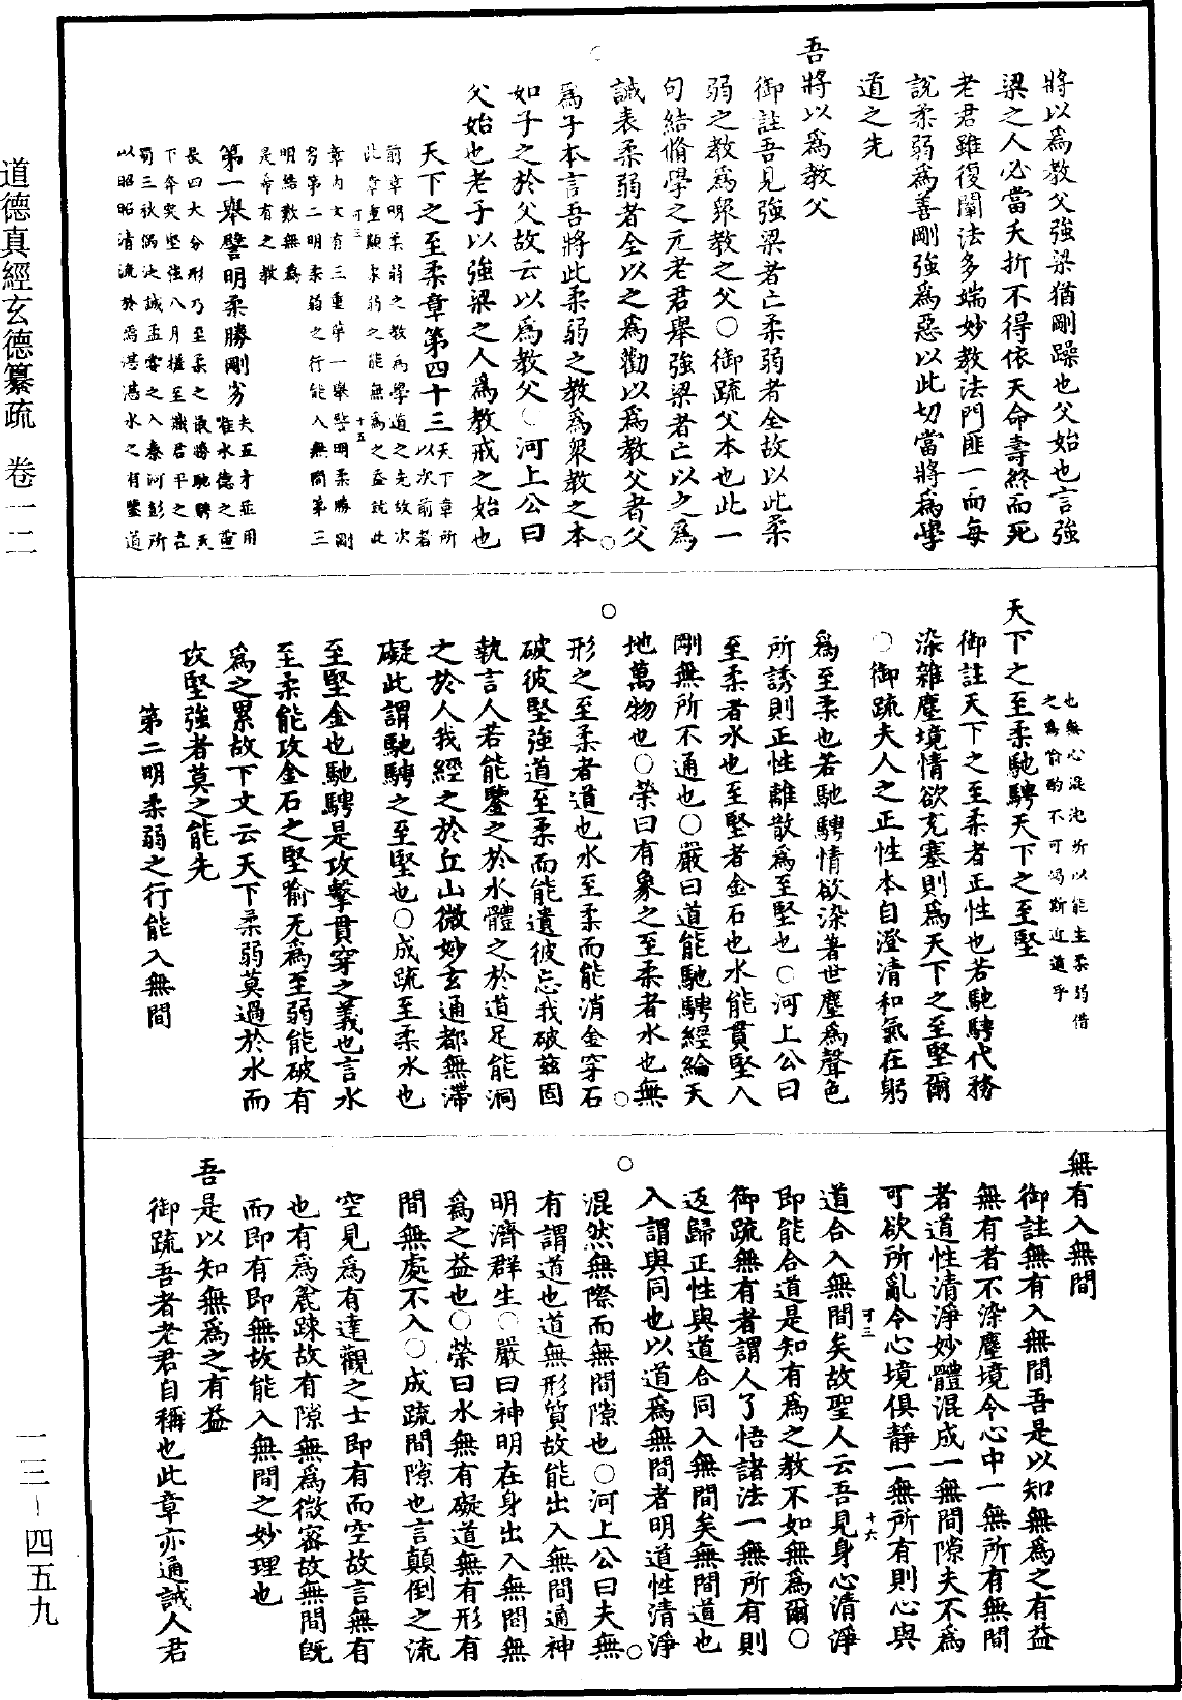 將以爲教父強梁猶剛躁也父始也言強
梁之人必當夭折不得依天命壽終而死
老君雖復闡法多端妙教法門匪一而每
說柔弱爲善剛強爲惡以此切當將爲學
道之先
吾將以爲教父
御註吾見強梁者亡柔弱者全故以此柔
弱之教爲衆教之父○御疏父本也此一
句結脩學之元老君舉強梁者亡以之爲
誡表柔弱者全以之爲勸以爲教父者父
爲子本言吾將此柔弱之教爲衆教之本
如子之於父故云以爲教父○河上公曰
父始也老子以強梁之人爲教戒之始也
天下之至柔章第四十三
天下章所以次前者
前章明柔弱之教爲學道之先故次
此章重顯柔弱之能無爲之益就此
章內文有三重第一舉譬明柔勝剛
劣第二明柔弱之行能入無間第三
明結歎無爲
是希有之教
第一舉譬明柔勝剛劣
夫五才並用唯水德之靈
長四大分形乃至柔之最勝馳騁天
下奔突堅強八月
以昭昭清流於焉湛湛水之有鑒道
也無心混沌所以能生柔弱借
之爲喻酌不可竭斯近道乎
天下之至柔馳騁天下之至堅
御註天下之至柔者正性也若馳騁代務
染雜塵境情欲充塞則爲天下之至堅爾
○御疏夫人之正性本自澄清和氣在躬
爲至柔也若馳騁情欲染著世塵爲聲色
所誘則正性離散爲至堅也○河上公曰
至柔者水也至堅者金石也水能貫堅入
剛無所不通也○嚴曰道能馳騁經綸天
地萬物也○榮曰有象之至柔者水也無
形之至柔者道也水至柔而能消金穿石
破彼堅強道至柔而能遺彼忘我破茲固
執言人若能鑒之於水體之於道足能洞
之於人我經之於丘山微妙玄通都無滯
礙此謂馳騁之至堅也○成疏至柔水也
至堅金也馳騁是攻擊貫穿之義也言水
至柔能攻金石之堅喻无爲至弱能破有
爲之累故下文云天下柔弱莫過於水而
攻堅強者莫之能先
第二明柔弱之行能入無間
無有入無間
御註無有入無間吾是以知無爲之有益
無有者不染塵境令心中一無所有無間
者道性清淨妙體混成一無間隙夫不爲
可欲所亂令心境俱靜一無所有則心與
道合入無間矣故聖人云吾見身心清淨
即能合道是知有爲之教不如無爲爾○
御疏無有者謂人了悟諸法一無所有則
返歸正性與道合同入無間矣無間道也
入謂與同也以道爲無間者明道性清淨
混然無際而無間隙也○河上公曰夫無
有謂道也道無形質故能出入無間通神
明濟群生○嚴曰神明在身出入無間無
爲之益也○榮曰水無有礙道無有形有
間無處不入○成疏間隙也言顛倒之流
空見爲有達觀之士即有而空故言無有
也有爲麄踈故有隙無爲微密故無間旣
而即有即無故能入無間之妙理也
吾是以知無爲之有益
御疏吾者老君自稱也此章亦通誡人君
可三
十五
可三
十六
道德真經玄德纂疏 卷一二
一三-四五九